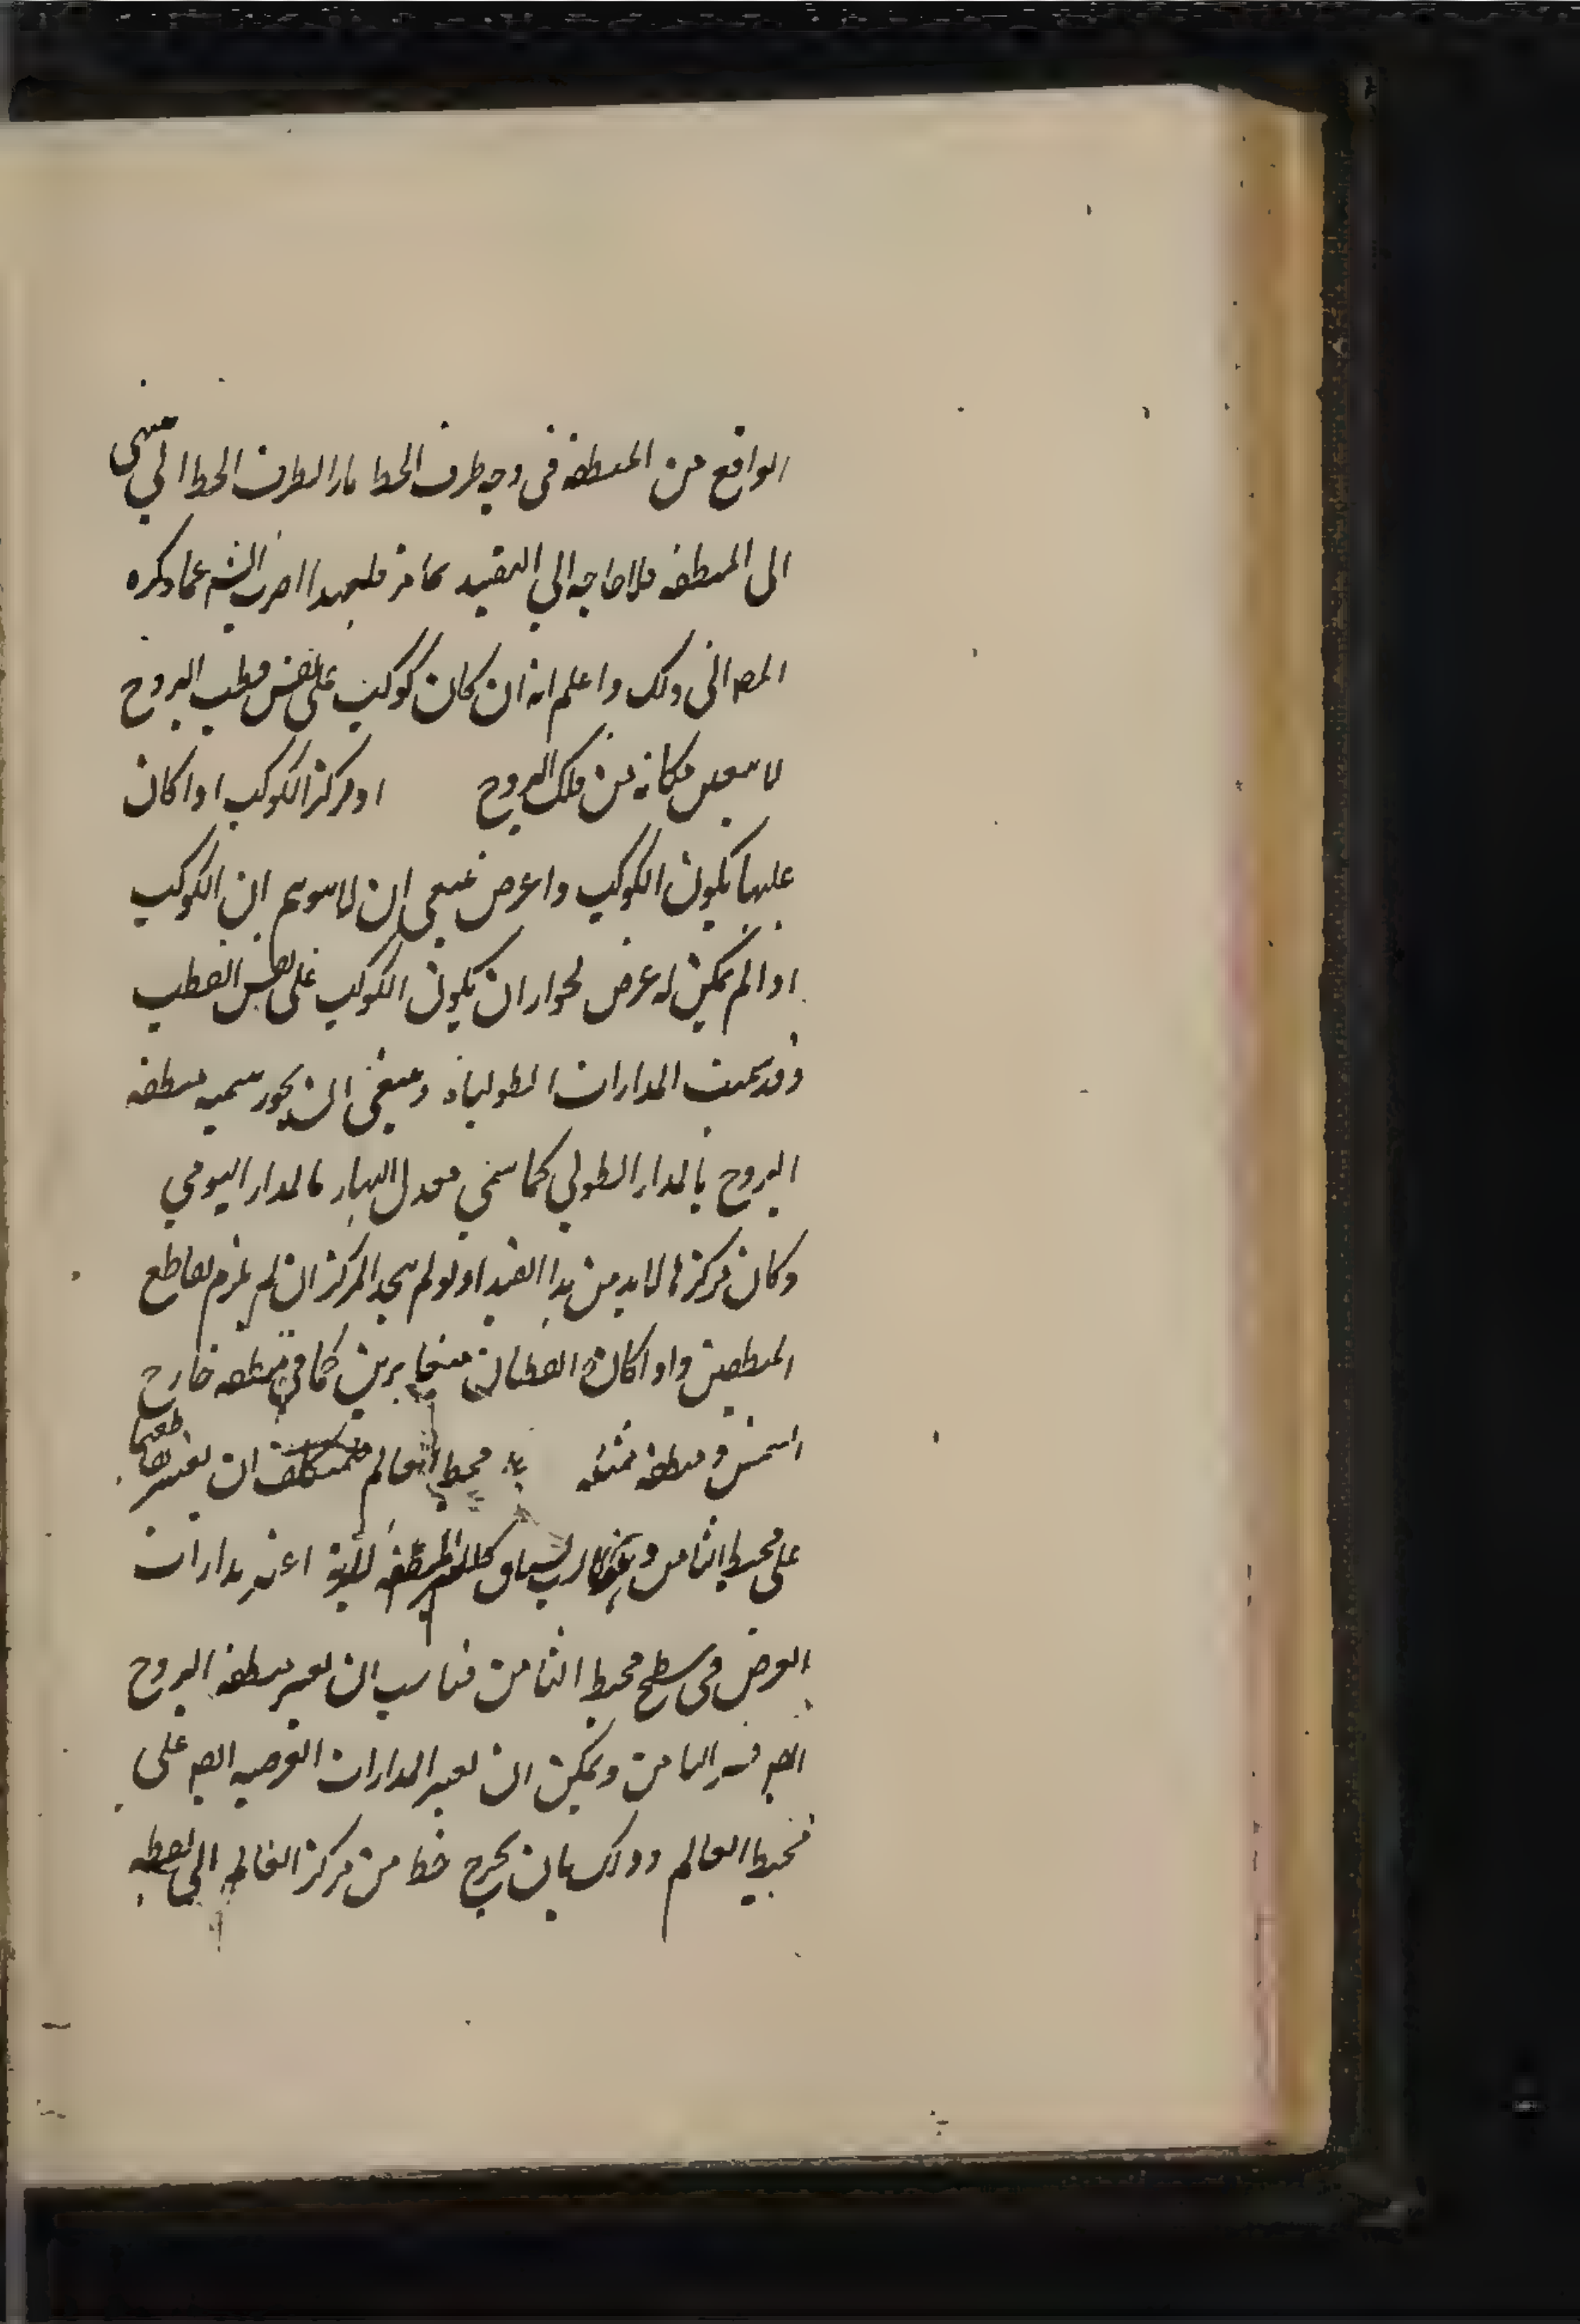 الواقع من المنطقة فى وجه طرف الخط مارا لطرف الخط الى منتهى
الى المنطقة فلا حاجه الى التقييد بما مر فلهذا اضرب الش عما ذكره
المص الى ذلك واعلم انه ان كان كوكب على نفس قطب البروج
لا يتعين مكانه من فلك البروج اذ مركز الكوكب اذا كان
عليها يكون الكوكب ذا عرض ينبغى ان لا يتوهم ان الكوكب
اذا لم يكن له عرض لجواز ان يكون الكوكب على نفس القطب
وقد سميت المدارات الطوليات وينبغى ان يجوز تسميه منطقة
البروج بالمدار الطولي كما سمي معدل النهار بالمدار اليومي
وكان مركزها لا بد من هذا القيد اذ لو لم يتحد المركز ان لم يلزم تقاطع
المنطقتين واذا كان القطبان متغايرين كما في منطقة خارج
الشمس ومنطقة ممثله محيط العالم ان تعتبر
على محيط الثامن اعنى مدارات
العرض فى سطح محيط الثامن فناسب ان تعتبر منطقة البروج
ايض الثامن ويمكن ان تعتبر المدارات العرضيه ايض على
محيط العالم وذلك بان يخرج خط من مركز العالم الى نقطه